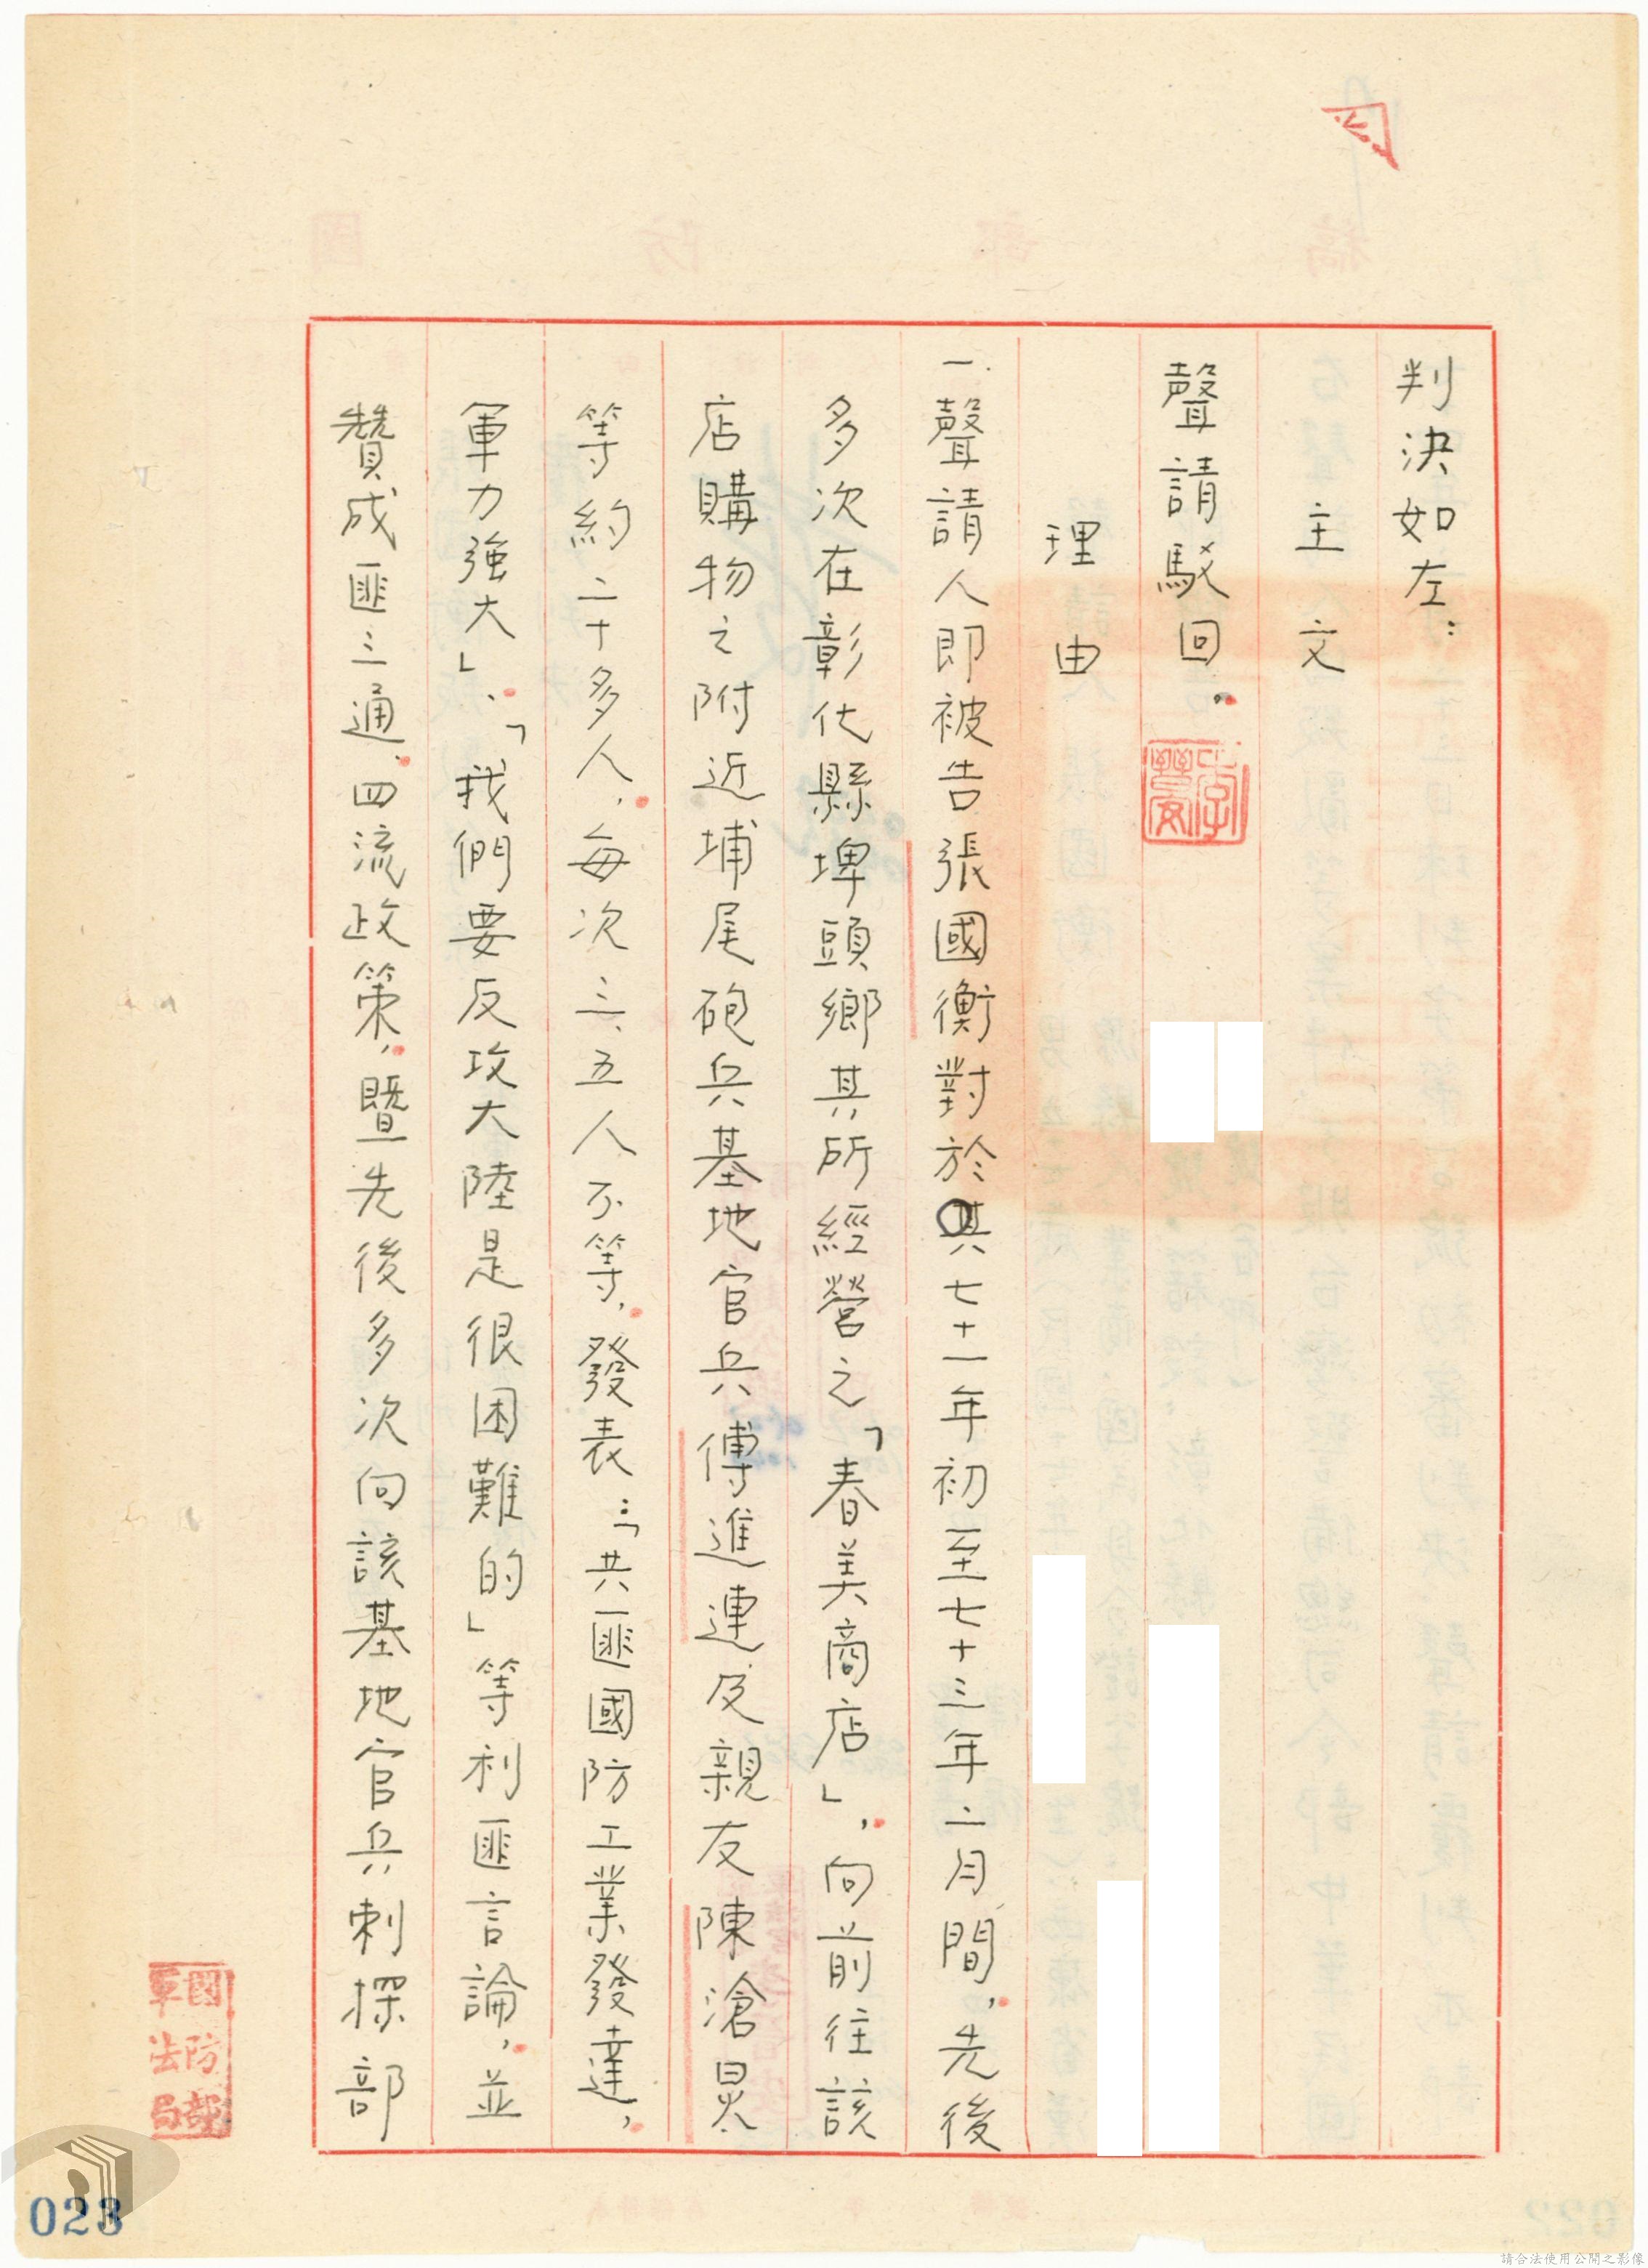 判決如左：
主文
聲請駁回。
理由
一.聲請人即被告張國衡對於其七十一年初至七十三年二月間，先後
多次在彰化縣埤頭鄉其所經營之「春美商店」，向前往該
店購物之附近埔尾砲兵基地官兵傅進連及親友陳滄炅
等約二十多人，每次三、五人不等，發表：「共匪國防工業發達，
軍力強大」、「我們要反攻大陸是很困難的」等利匪言論，並
贊成匪三通、四流政策，暨先後多次向該基地官兵刺探部
國防部
軍法局
023
請合法使用公開之影像